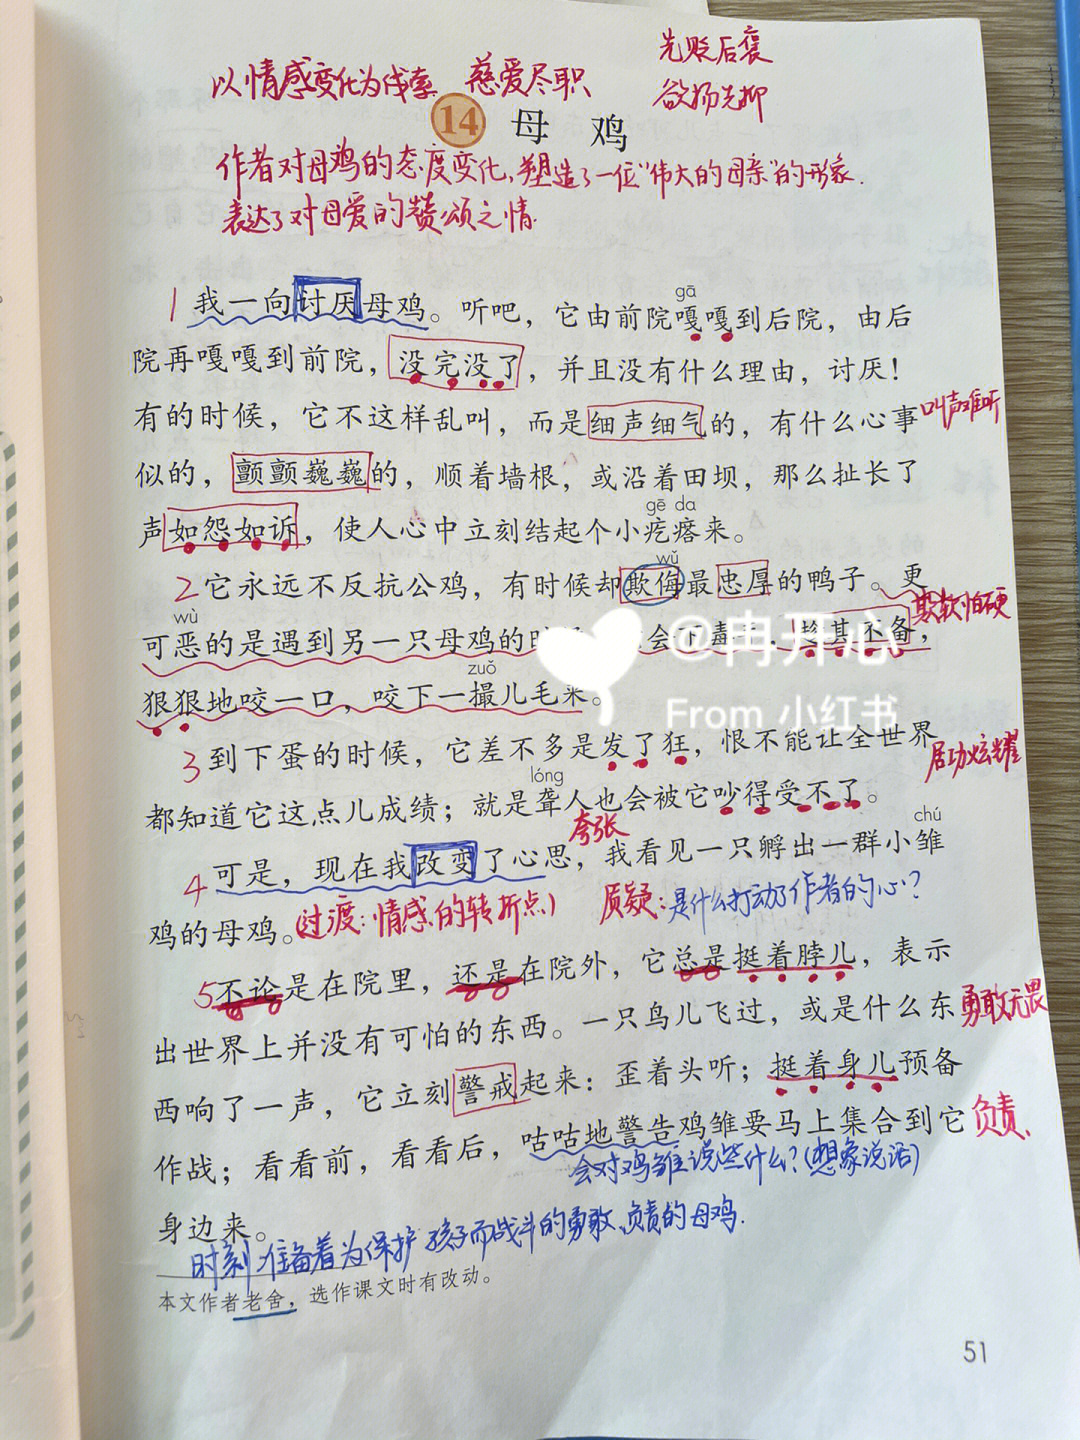 先贬后褒
以情感变化为线索 慈爱尽职
欲扬先抑
14 母鸡
作者对母鸡的态度变化,塑造了一位“伟大的母亲”的形象.
表达了对母爱的赞颂之情.
1 我一向讨厌母鸡。听吧,它由前院嘎嘎到后院,由后
gā
院再嘎嘎到前院,没完没了,并且没有什么理由,讨厌!
有的时候,它不这样乱叫,而是细声细气的,有什么心事
叫声难听
似的,颤颤巍巍的,顺着墙根,或沿着田坝,那么扯长了
gē da
声如怨如诉,使人心中立刻结起个小疙瘩来。
wǔ
2 它永远不反抗公鸡,有时候却欺侮最忠厚的鸭子。更
欺软怕硬
wù
可恶的是遇到另一只母鸡的时 会下毒 ,趁其不备,
zuǒ
狠狠地咬一口,咬下一撮儿毛来。
3 到下蛋的时候,它差不多是发了狂,恨不能让全世界
居功炫耀
lóng
都知道它这点儿成绩;就是聋人也会被它吵得受不了。
夸张
chú
4 可是,现在我改变了心思,我看见一只孵出一群小雏
鸡的母鸡。(过渡:情感的转折点) 质疑:是什么打动了作者的心?
5 不论是在院里,还是在院外,它总是挺着脖儿,表示
出世界上并没有可怕的东西。一只鸟儿飞过,或是什么东
勇敢无畏
西响了一声,它立刻警戒起来:歪着头听;挺着身儿预备
作战;看看前,看看后,咕咕地警告鸡雏要马上集合到它
负责.
会对鸡雏说些什么?(想象说话)
身边来。
时刻准备着为保护孩子而战斗的勇敢、负责的母鸡.
本文作者老舍,选作课文时有改动。
51
@冉开心
From 小红书